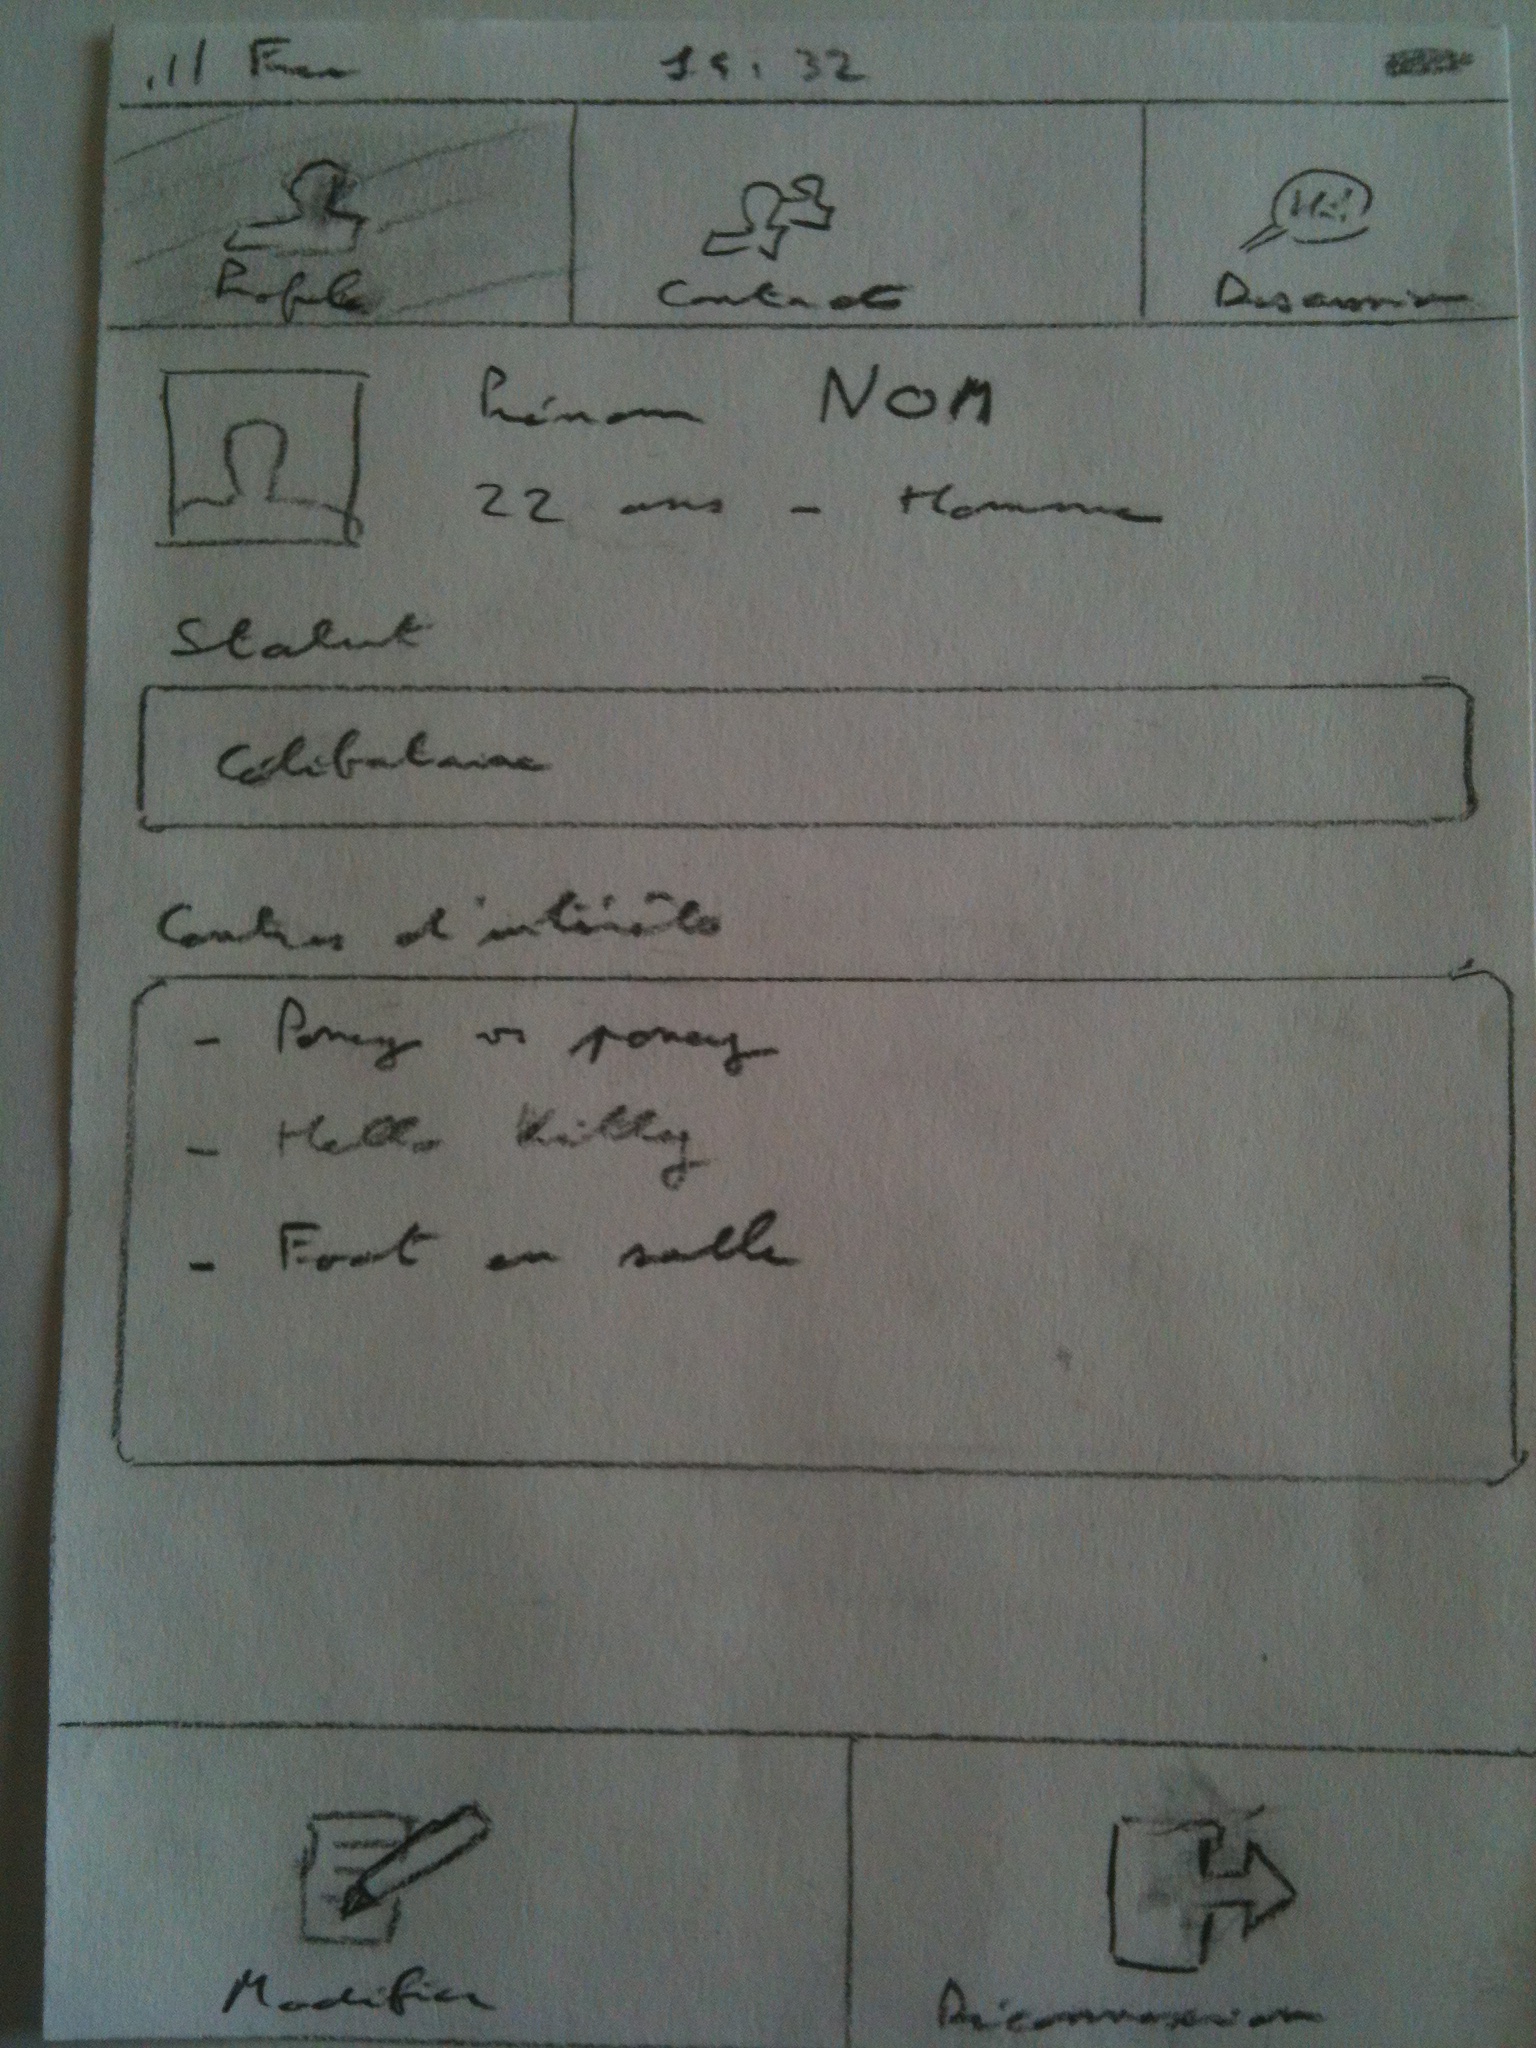 Free 14:32
Profile Contact Discussion
Prénom NOM
22 ans - Homme
Statut
Célibataire
Centres d'intérêts
- Poney vs poney
- Hello Kitty
- Foot en salle
Modifier Déconnexion